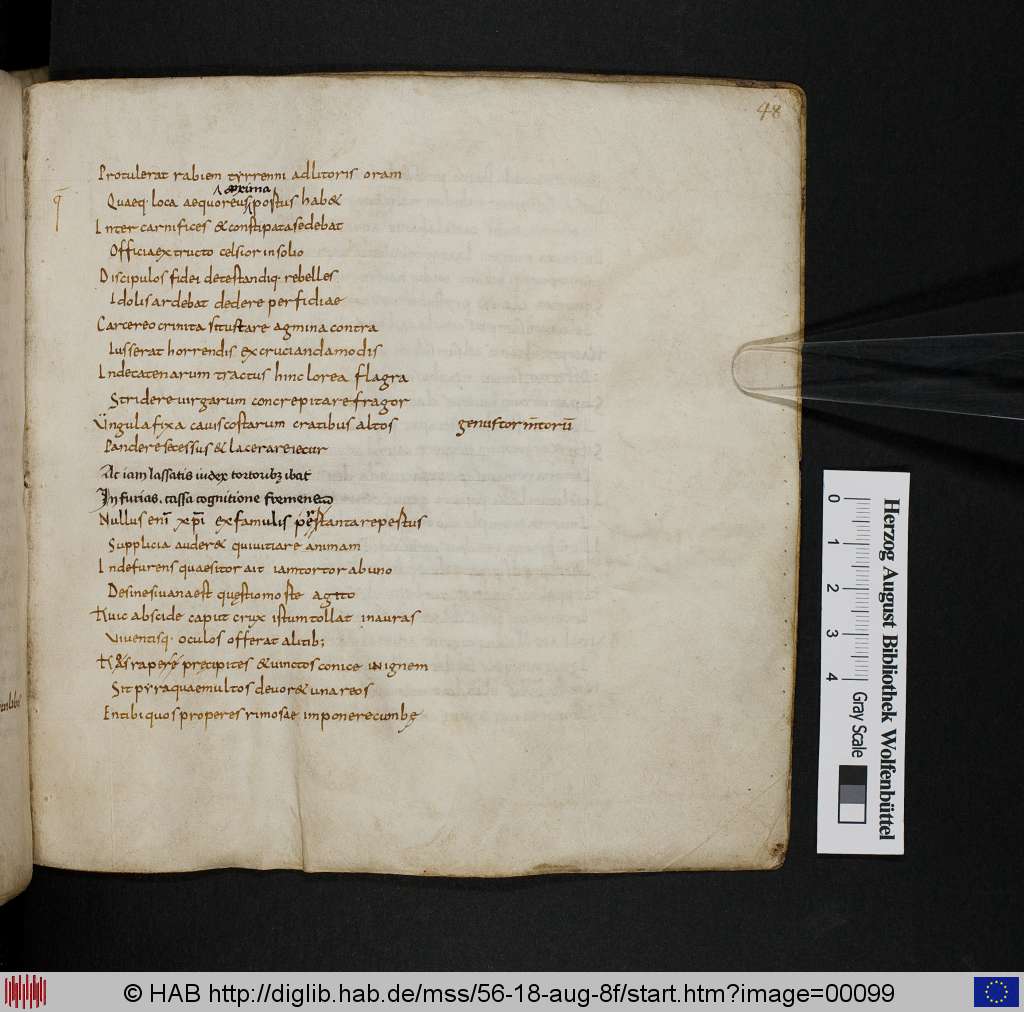 48
Protulerat rabiem tyrrenni adlitoris oram
proxima
Quaeq· loca aequoreus postus hab&
Inter carnifices & constipata sedebat
Officia extructo celsior in solio
Discipulos fidei detestandiq· rebelles
Idolis ardebat dedere perfidiae
Carcereo crinita situ stare agmina contra
Iusserat horrendis excruciandamodis
Inde catenarum tractus hinc lorea flagra
Stridere virgarum concrepitare fragor
Ungula fixa cavis costarum cratibus altos
genus tormtorū
Pandere secessus & lacerare iecur
Ac iam lassatis iudex tortoribz ibat
In furias, cassa cognitione fremens
Nullus enī xpī exfamulis per stantarepestus
Supplicia auder& quivitiare animam
Inde furens quaesitor ait iamtortor abuno
Desinesivanaest quęstiomoste agito
Huic abscide caput crux istum tollat inauras
Viventisq· oculos offerat alitib;
Has rapere precipites & vinctos conice in ignem
Sit pyra quae multos devor& una reos
En tibi quos properes rimosae imponere cumbę
Herzog August Bibliothek Wolfenbüttel
0 1 2 3 4
Gray Scale
© HAB http://diglib.hab.de/mss/56-18-aug-8f/start.htm?image=00099